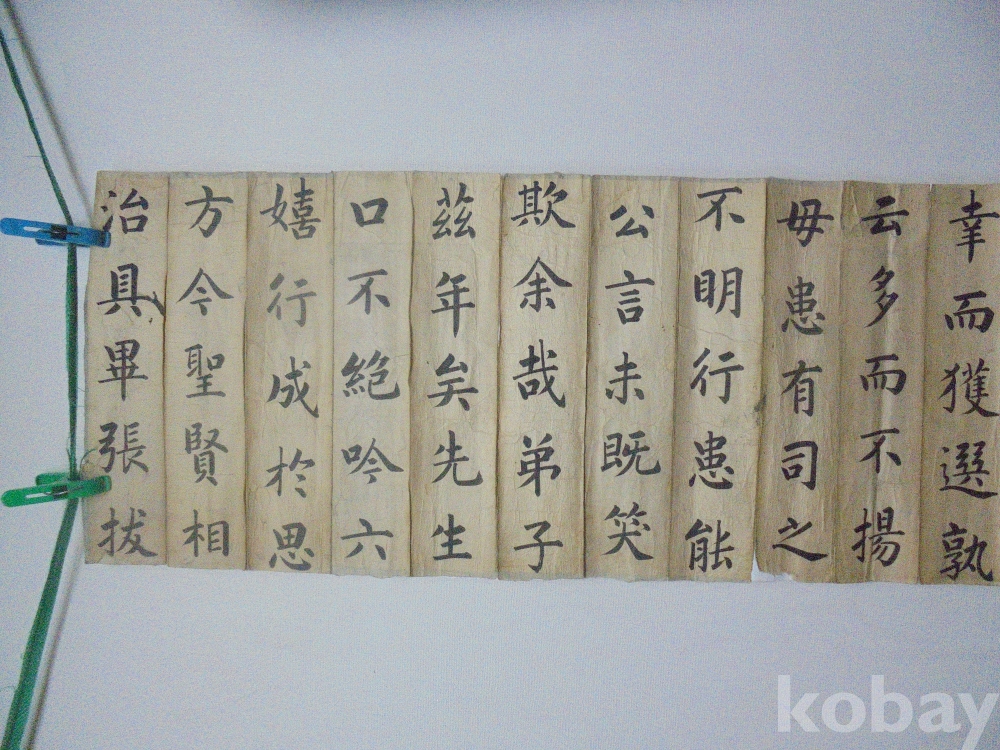 幸而獲選孰
云多而不揚
毋患有司之
不明行患能
公言未既笑
欺余哉弟子
茲年矣先生
口不絕吟六
嬉行成於思
方今聖賢相
治具畢張拔
kobay